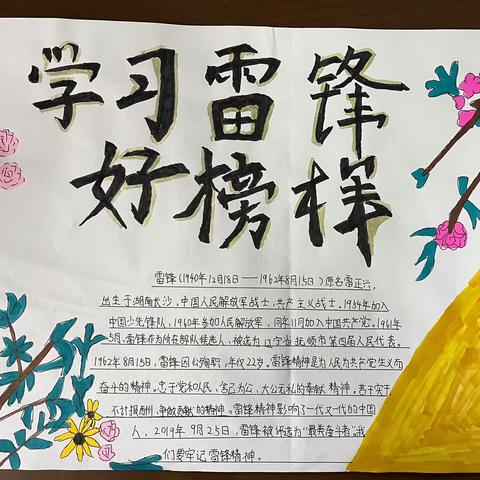 学习雷锋
好榜样
雷锋(1940年12月18日——1962年8月15日)原名雷正兴,
出生于湖南长沙,中国人民解放军战士,共产主义战士。1954年加入
中国少先锋队,1960年参加人民解放军,同年11月加入中国共产党。1961年
5月,雷锋作为所在部队候选人,被选为辽宁省抚顺市第四届人民代表。
1962年8月15日,雷锋因公殉职,年仅22岁。雷锋精神是为人民为共产主义而
奋斗的精神。忠于党和人民,舍己为公、大公无私的奉献精神,苦干实干
不计报酬,争做贡献的精神。雷锋精神影响了一代又一代的中国
人,2019年9月25日,雷锋被评选为“最美奋斗者”,我
们要牢记雷锋精神。